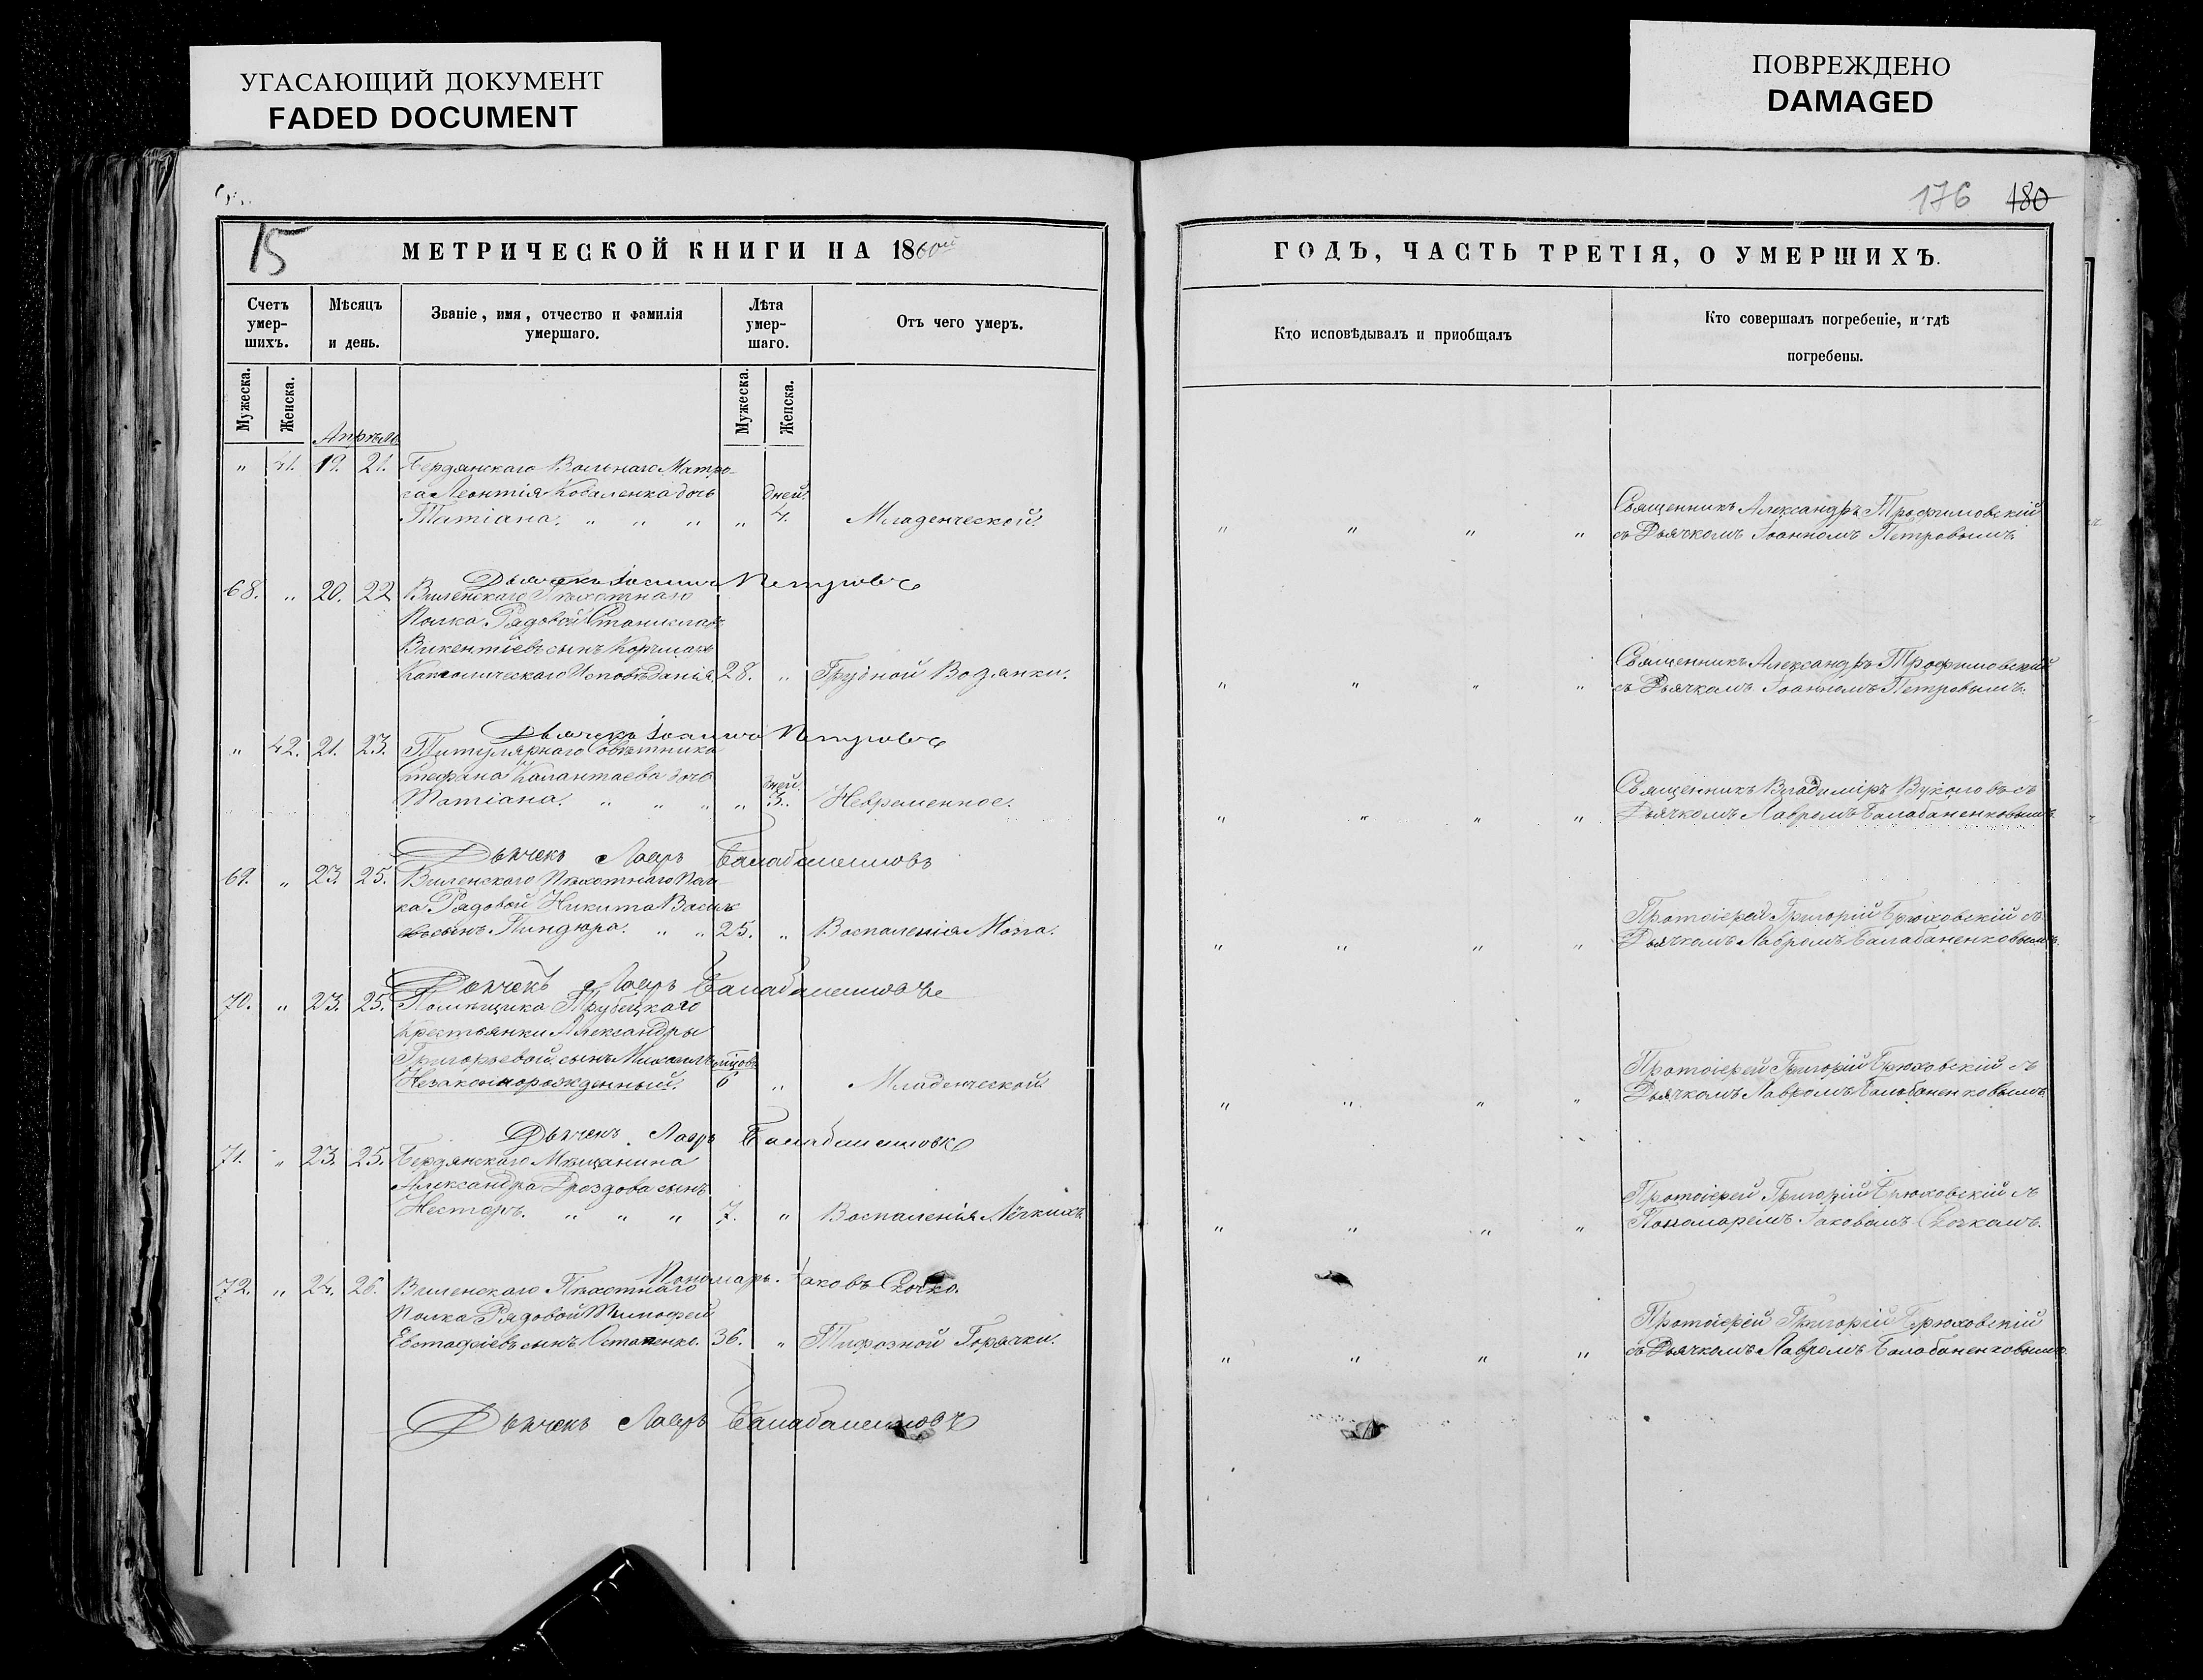 УГАСАЮЩИЙ ДОКУМЕНТ
FADED DOCUMENT
ПОВРЕЖДЕНО
DAMAGED
15
МЕТРИЧЕСКОЙ КНИГИ НА 1860ой
Счетъ умер-шихъ.
Мѣсяцъ и день.
Званіе, имя, отчество и фамилія умершаго.
Лѣта умер-шаго.
Отъ чего умеръ.
Мужеска.
Женска.
Мужеска.
Женска.
Апрѣль
" 41. 19. 21. Бердянскаго Вольнаго Матро-
са Леонтія Коваленка дочь дней
Татіана. " " " " 4. Младенческой.
Дьячекъ Іоаннъ Петровъ
68. " 20. 22 Виленскаго Пѣхотнаго
Полка Рядовой Станиславъ
Викентіевъ сынъ
Католическаго Исповѣданія. 28. " Грудной Водянки.
Дьячекъ Іоаннъ Петровъ
" 42. 21. 23. Титулярнаго Совѣтника
Стефана Калантаева дочь дней.
Татіана. " " " " 3. Невременное.
Дьячекъ Лавръ Балабаненковъ
69. " 23. 25. Виленскаго Пѣхотнаго Пол-
ка Рядовой Никита Василь
евъ сынъ Пиндюра. " " 25. " Воспаленія Мозга.
Дьячекъ Лавръ Балабаненковъ
70. " 23. 25. Помѣщика Трубецкаго
крестьянки Александры
Григорьевой сынъ Михаилъ
Незаконнорожденный. 6 " Младенческой.
Дьячекъ Лавръ Балабаненковъ
71. " 23. 25. Бердянскаго Мѣщанина
Александра Дроздова сынъ
Несторъ. " " " 7. " Воспаленія Лёгкихъ.
Пономарь Іаковъ Сочко.
72. " 24. 26. Виленскаго Пѣхотнаго
Полка Рядовой Тимофей
Евстафіевъ сынъ Остапенко. 36. " Тифозной Горячки.
Дьячекъ Лавръ Балабаненковъ
176 180
ГОДЪ, ЧАСТЬ ТРЕТІЯ, О УМЕРШИХЪ.
Кто исповѣдывалъ и пріобщалъ
Кто совершалъ погребеніе, и гдѣ
погребены.
Священникъ Александръ Трофимовскій
" " " " съ Дьячкомъ Іоанномъ Петровымъ.
Священникъ Александръ Трофимовскій
" " " " съ Дьячкомъ Іоанномъ Петровымъ.
Священникъ Владиміръ Вуколовъ съ
" " " " Дьячкомъ Лавромъ Балабаненковымъ.
Протоіерей Григорій Брюховскій съ
" " " " Дьячкомъ Лавромъ Балабаненковымъ.
Протоіерей Григорій Брюховскій съ
" " " " Дьячкомъ Лавромъ Балабаненковымъ.
Протоіерей Григорій Брюховскій съ
" " " " Пономаремъ Іаковомъ Сочкомъ.
Протоіерей Григорій Брюховскій
" " " " съ Дьячкомъ Лавромъ Балабаненковымъ.